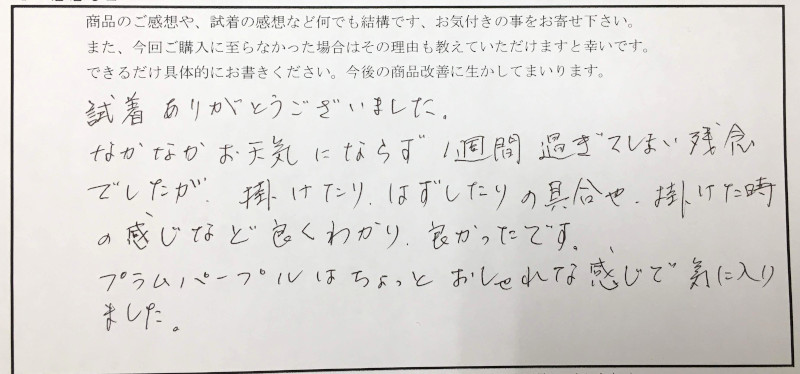 商品のご感想や、試着の感想など何でも結構です、お気付きの事をお寄せ下さい。
また、今回ご購入に至らなかった場合はその理由も教えていただけますと幸いです。
できるだけ具体的にお書きください。今後の商品改善に生かしてまいります。
試着 ありがとうございました。
なかなか お天気 に ならず 1週間 過ぎてしまい 残念
でしたが、掛けたり、はずしたり の 具合や、掛けた時
の 感じなど 良くわかり、良かったです。
プラムパープル は ちょっと おしゃれな 感じで 気に入り
ました。